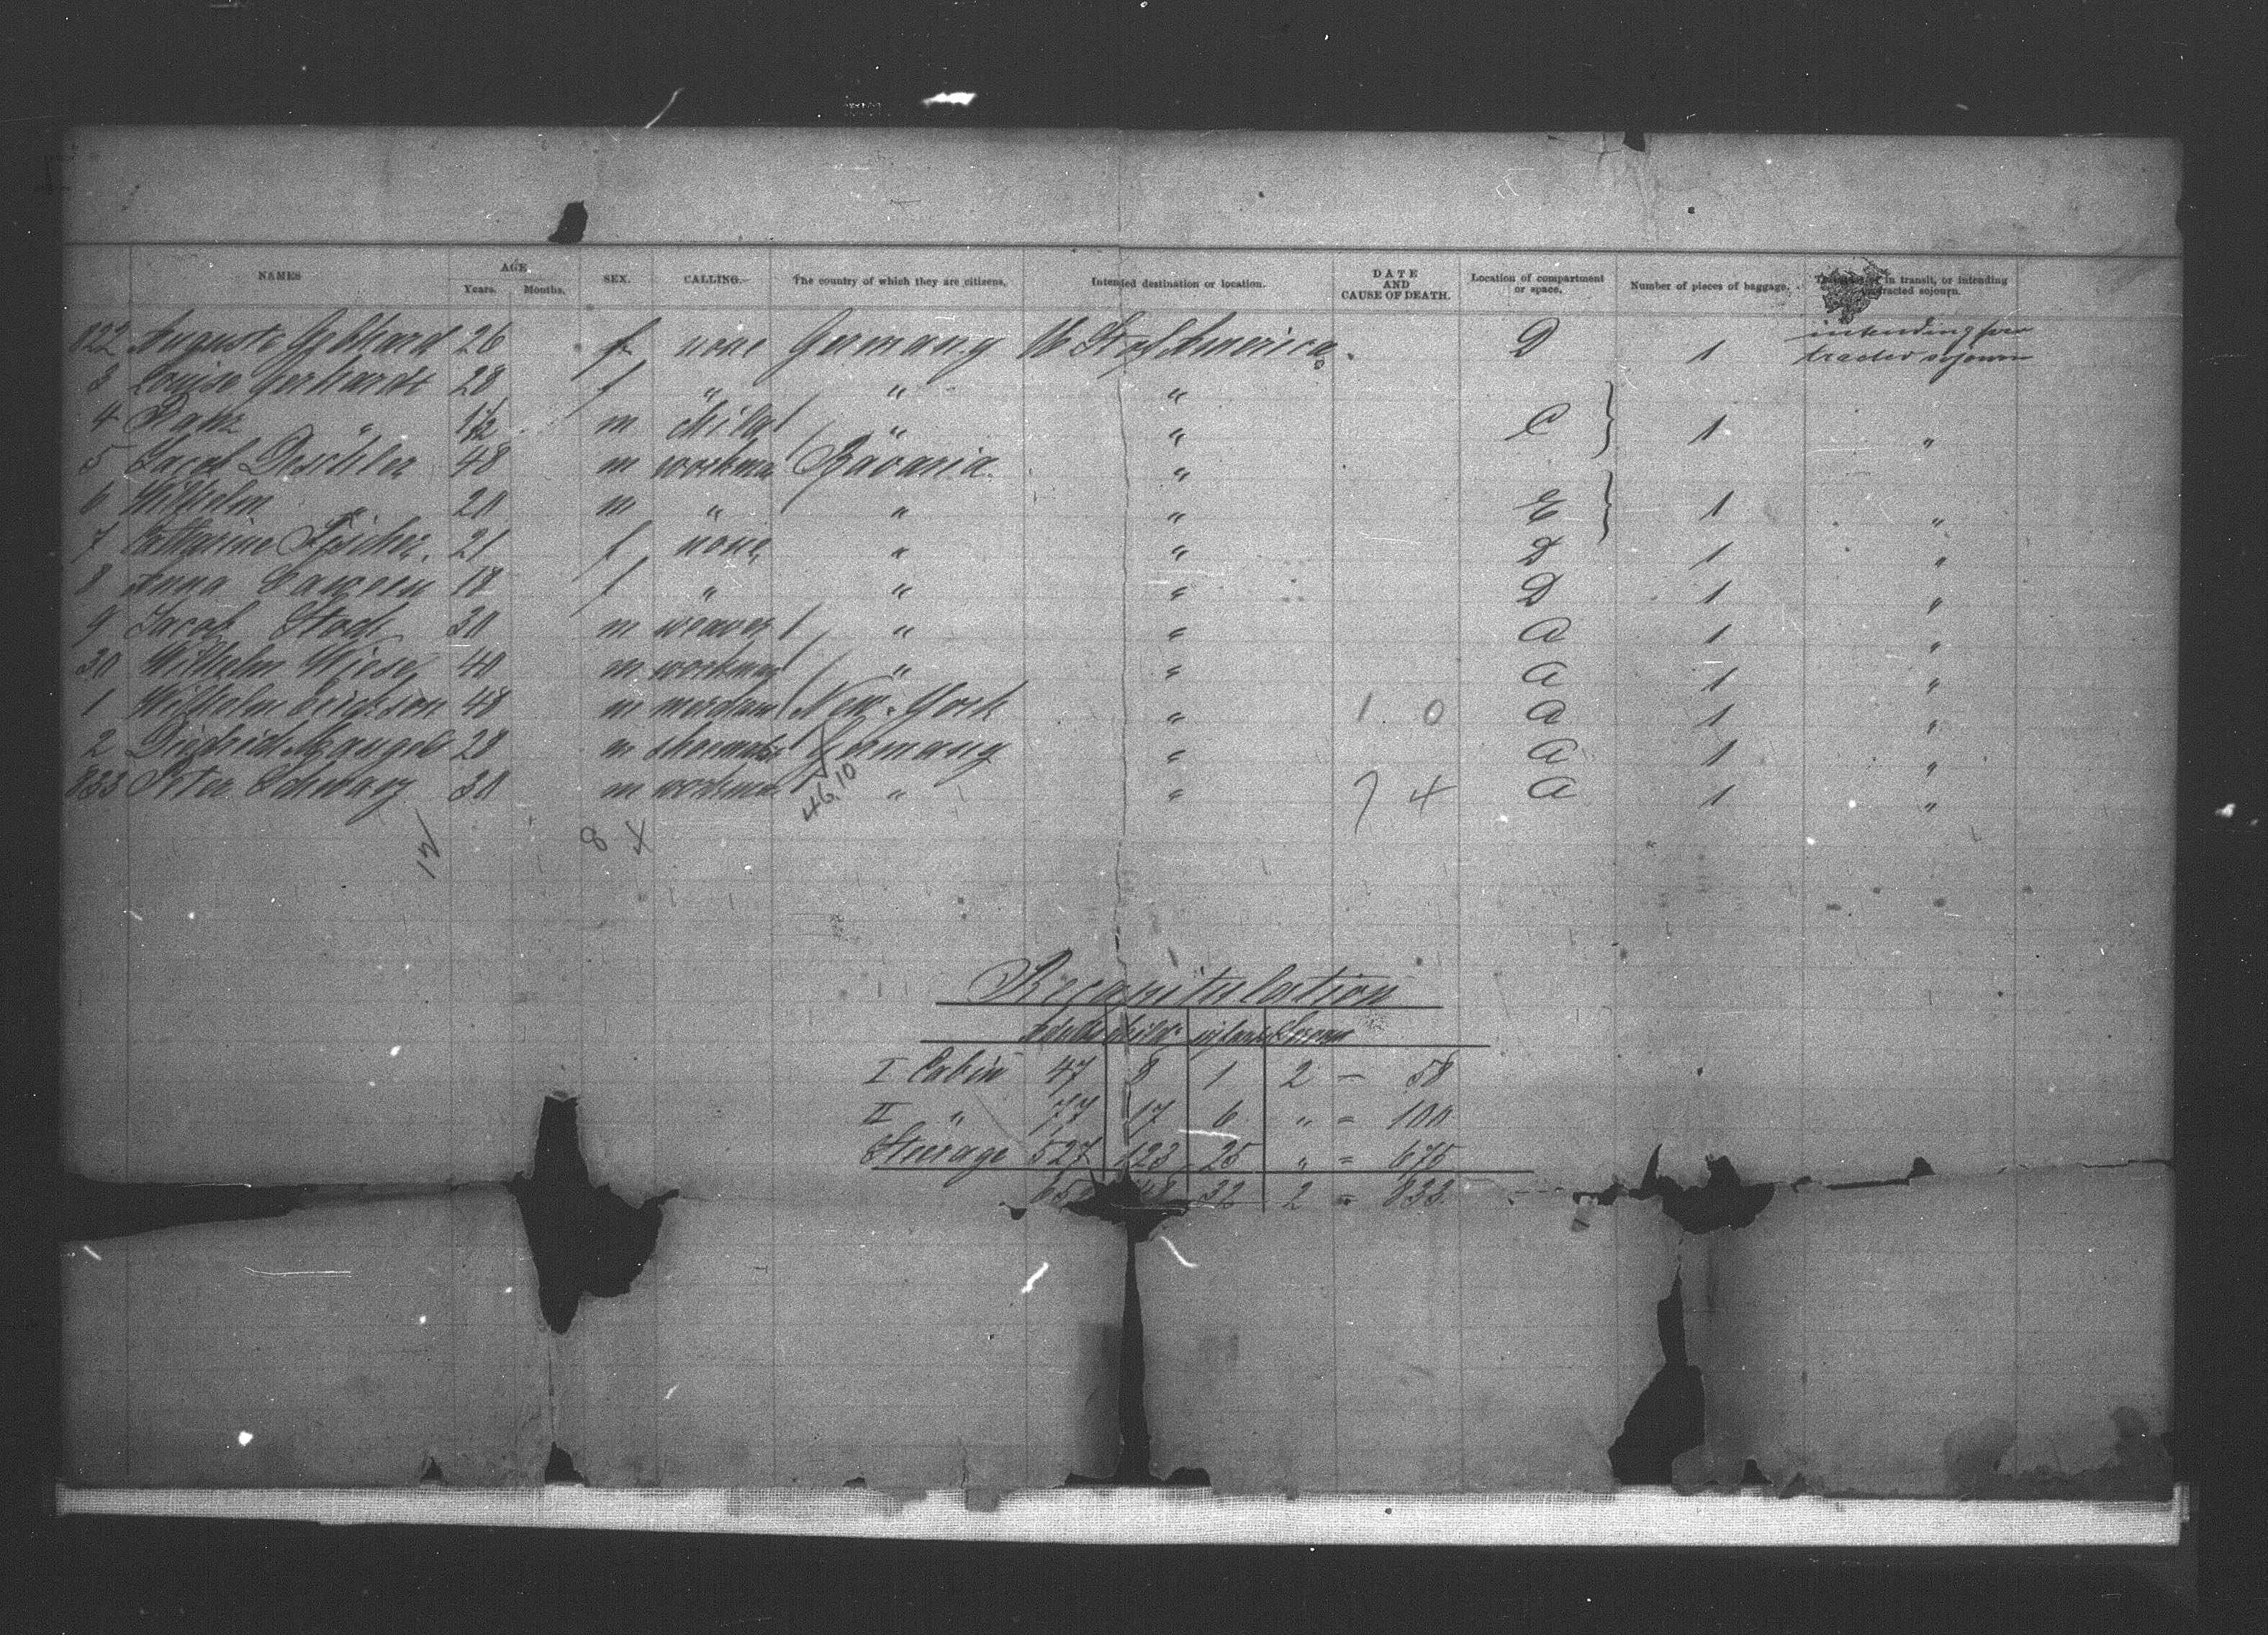 NAMES AGE. Years. Months. SEX. CALLING. The country of which they are citizens. Intended destination or location. DATE AND CAUSE OF DEATH. Location of compartment or space. Number of pieces of baggage. in transit, or intending protracted sojourn.
822 Auguste Gebhard 26 f none Germany U St of America. D 1 intending pro
tracted sojourn
3 Louise Gerhardt 28 f " " "
4 " 1 1/2 m child " " C } 1 "
5 Jacob Deschler 48 m workman Bavaria "
6 Wilhelm " 20 m " " " E } 1 "
7 Catharine Fischer 21 f none " " D 1 "
8 Anna 18 f " " " D 1 "
9 Jacob Stock 30 m weaver " " A 1 "
30 Wilhelm Wiese 40 m workman " " A 1 "
1 Wilhelm Erickson 48 m New-York " 1 0 A 1 "
2 28 m shoemaker Germany " A 1 "
833 Peter Schwarz 30 m workman " " 7 4 A 1 "
46.10
12 8 4
Recapitulation
adults child infants
I Cabin 47 8 1 2 — 58
II " 77 17 6 " = 100
Steerage 527 123 25 " = 675
32 2 = 833